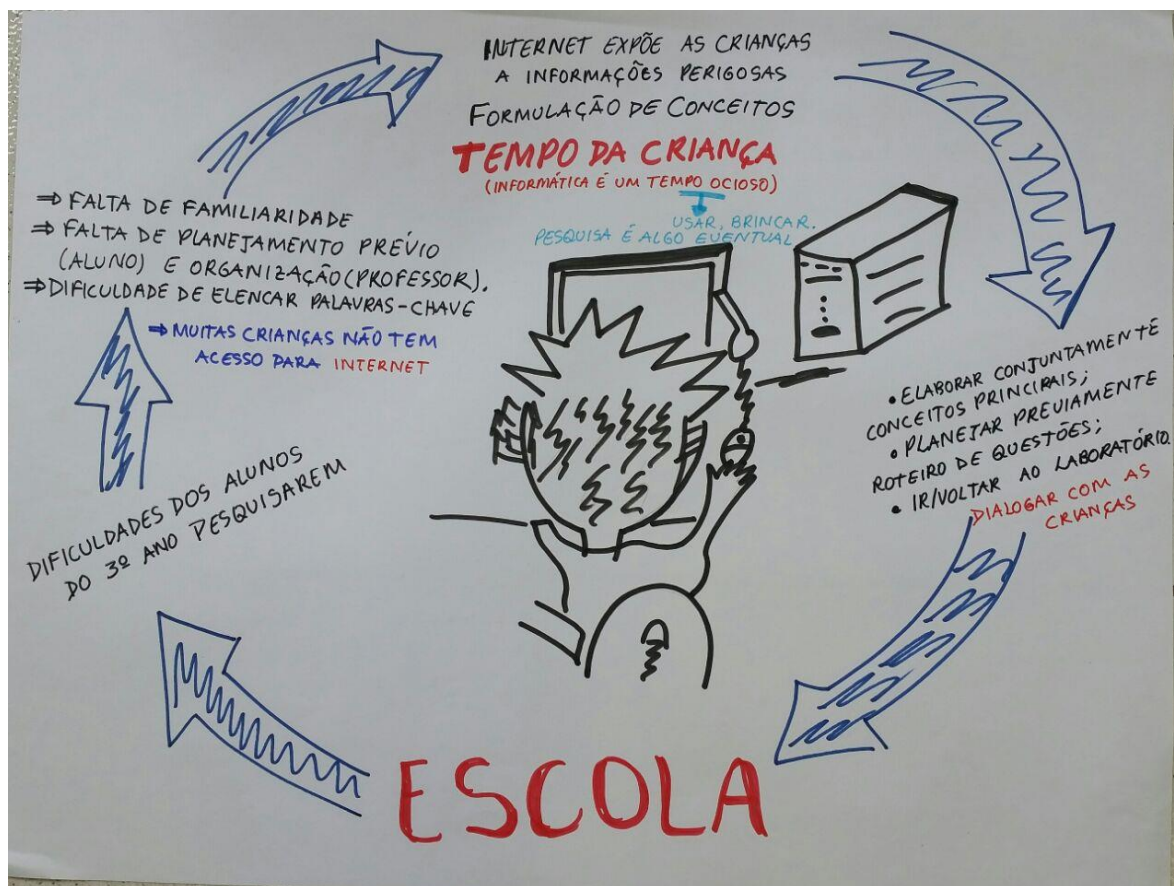 INTERNET EXPÕE AS CRIANÇAS
A INFORMAÇÕES PERIGOSAS
FORMULAÇÃO DE CONCEITOS
TEMPO DA CRIANÇA
(INFORMÁTICA É UM TEMPO OCIOSO)
USAR, BRINCAR.
PESQUISA É ALGO EVENTUAL
⇒ FALTA DE FAMILIARIDADE
⇒ FALTA DE PLANEJAMENTO PRÉVIO
(ALUNO) E ORGANIZAÇÃO (PROFESSOR).
⇒ DIFICULDADE DE ELENCAR PALAVRAS-CHAVE
⇒ MUITAS CRIANÇAS NÃO TEM
ACESSO PARA INTERNET
• ELABORAR CONJUNTAMENTE
CONCEITOS PRINCIPAIS;
• PLANEJAR PREVIAMENTE
ROTEIRO DE QUESTÕES;
• IR/VOLTAR AO LABORATÓRIO.
DIALOGAR COM AS
CRIANÇAS
DIFICULDADES DOS ALUNOS
DO 3º ANO PESQUISAREM
ESCOLA